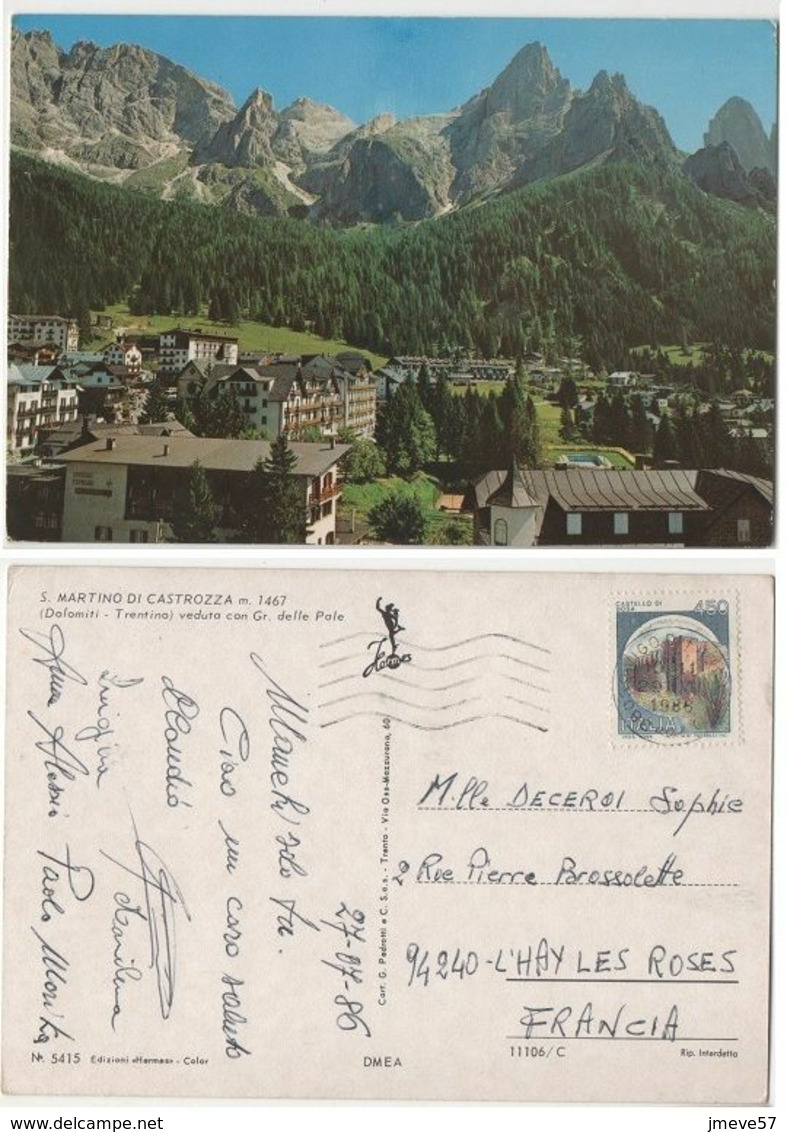 S. MARTINO DI CASTROZZA m. 1467
(Dolomiti - Trentino) veduta con Gr. delle Pale
Hermes
CASTELLO DI
450
1986
ITALIA
Manchi solo tu.
Ciao un caro saluto
Claudio
Luigina
Anna Alessio Paolo
27-07-86
Cart. G. Pedrotti e C. S.a.s. - Trento - Via Oss-Mazzurana, 60
M.lle DECEROI Sophie
2 Rue Pierre Brossolette
94240-L'HAY LES ROSES
FRANCIA
N. 5415 Edizioni «Hermes» - Color
DMEA
11106/C
Rip. Interdetta
jmeve57